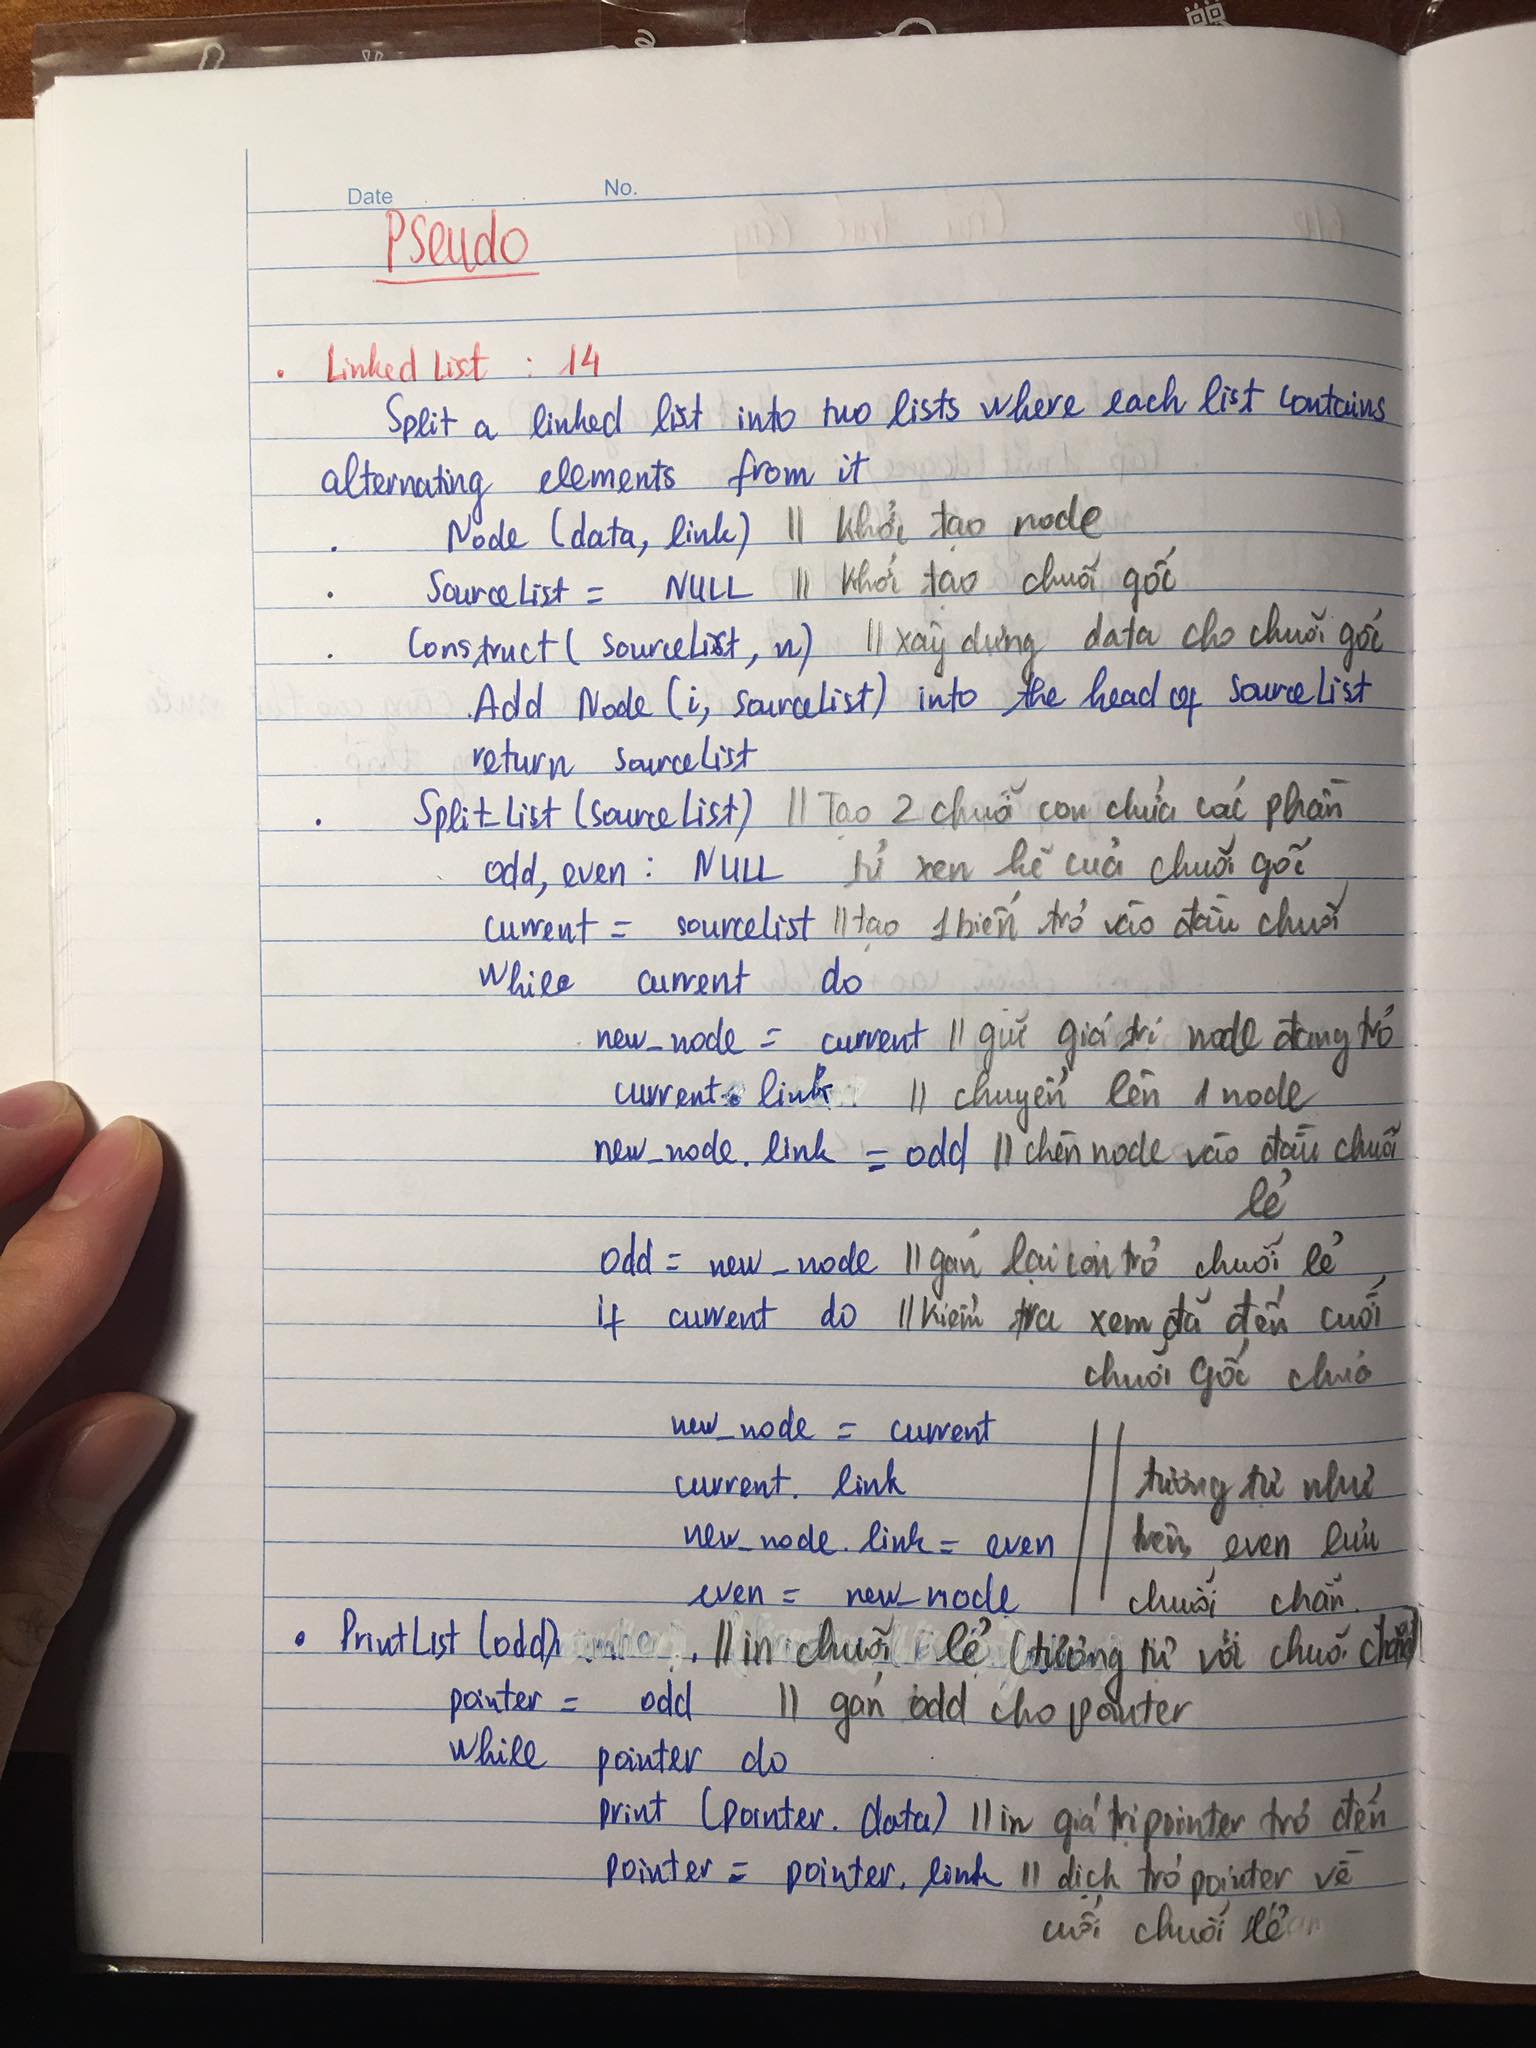 Date No.
Pseudo
. Linked List : 14
Split a linked list into two lists where each list contains
alternating elements from it
. Node (data, link) // khởi tạo node
. SourceList = NULL // khởi tạo chuỗi gốc
. Construct ( sourceList, n) // xây dựng data cho chuỗi gốc
.Add Node (i, sourceList) into the head of sourceList
return sourceList
. Split_List (sourceList) // Tạo 2 chuỗi con chứa các phần
odd, even : NULL tử xen kẽ của chuỗi gốc
current = sourcelist // tạo 1 biến trỏ vào đầu chuỗi
While current do
new_node = current // giữ giá trị node đang trỏ
current. link // chuyển lên 1 node
new_node. link = odd // chèn node vào đầu chuỗi
lẻ
odd = new_node // gán lại con trỏ chuỗi lẻ
if current do // kiểm tra xem đã đến cuối
chuỗi gốc chưa
new_node = current
current. link // tương tự như
new_node. link = even trên, even lưu
even = new_node chuỗi chẵn.
• PrintList (odd) // in chuỗi lẻ (tương tự với chuỗi chẵn)
pointer = odd // gán odd cho pointer
While pointer do
print (pointer. data) // in giá trị pointer trỏ đến
pointer = pointer. link // dịch trỏ pointer về
cuối chuỗi lẻ